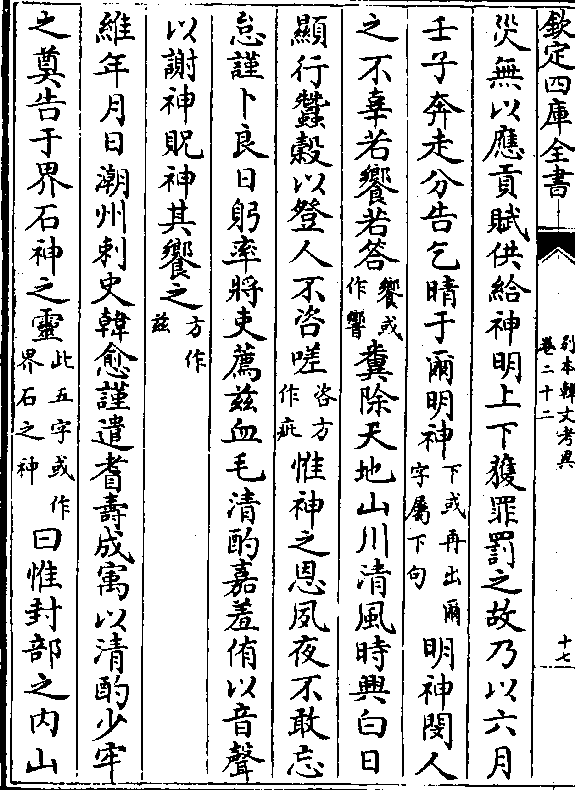 欽定四庫全書
別本韓文考異
卷二十二
十七
災無以應貢賦供給神明上下獲罪罰之故乃以六月
壬子奔走分告乞晴于爾明神下或再出爾字屬下句明神閔人
之不辜若饗若答饗或作響糞除天地山川清風時興白日
顯行蠶穀以登人不咨嗟咨方作疵惟神之恩夙夜不敢忘
怠謹卜良日躬率將吏薦茲血毛清酌嘉羞侑以音聲
以謝神貺神其饗之方作茲
維年月日潮州刺史韓愈謹遣耆壽成寓以清酌少牢
之奠告于界石神之靈此五字或作界石之神曰惟封部之內山